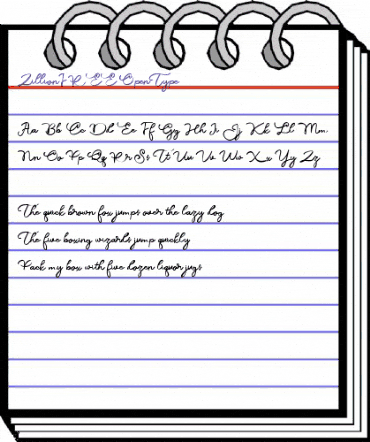 ZillionFREE OpenType
Aa Bb Cc Dd Ee Ff Gg Hh Ii Jj Kk Ll Mm
Nn Oo Pp Qq Rr Ss Tt Uu Vv Ww Xx Yy Zz
The quick brown fox jumps over the lazy dog
The five boxing wizards jump quickly
Pack my box with five dozen liquor jugs